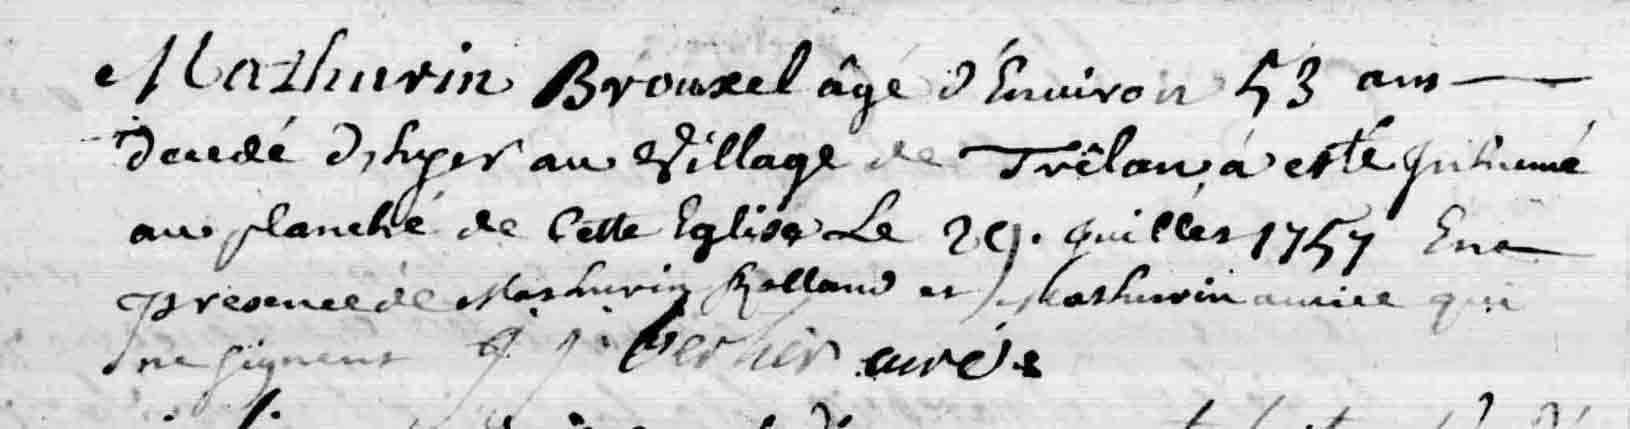 Mathurin Brouxel âgé d'Environ 53 ans
decedé d'hyer au Village de Trêlan, à esté inhumé
au planché de Cette Eglise Le 29. juillet 1757 En
presence de Mathurin Rolland et Mathurin qui
ne signent J j curé